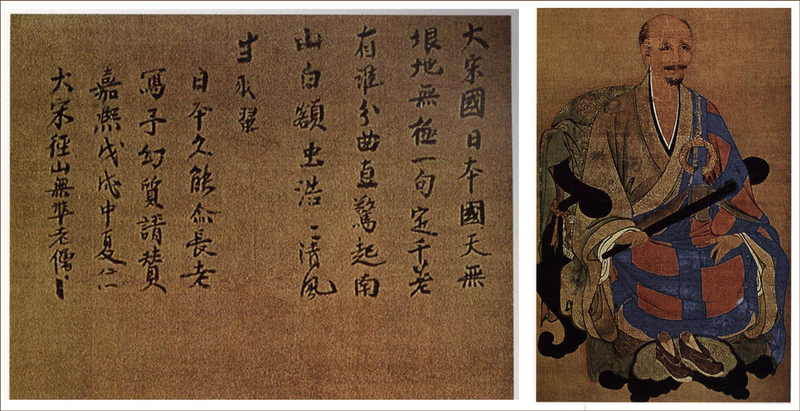 大宋國日本國天無
垠地無極一句定千差
有誰分曲直驚起南
山白額虫浩〻清風
生羽翼
日本久能尒長老
寫予幻質請賛
嘉熙戊戌中夏住
大宋徑山無準老僧